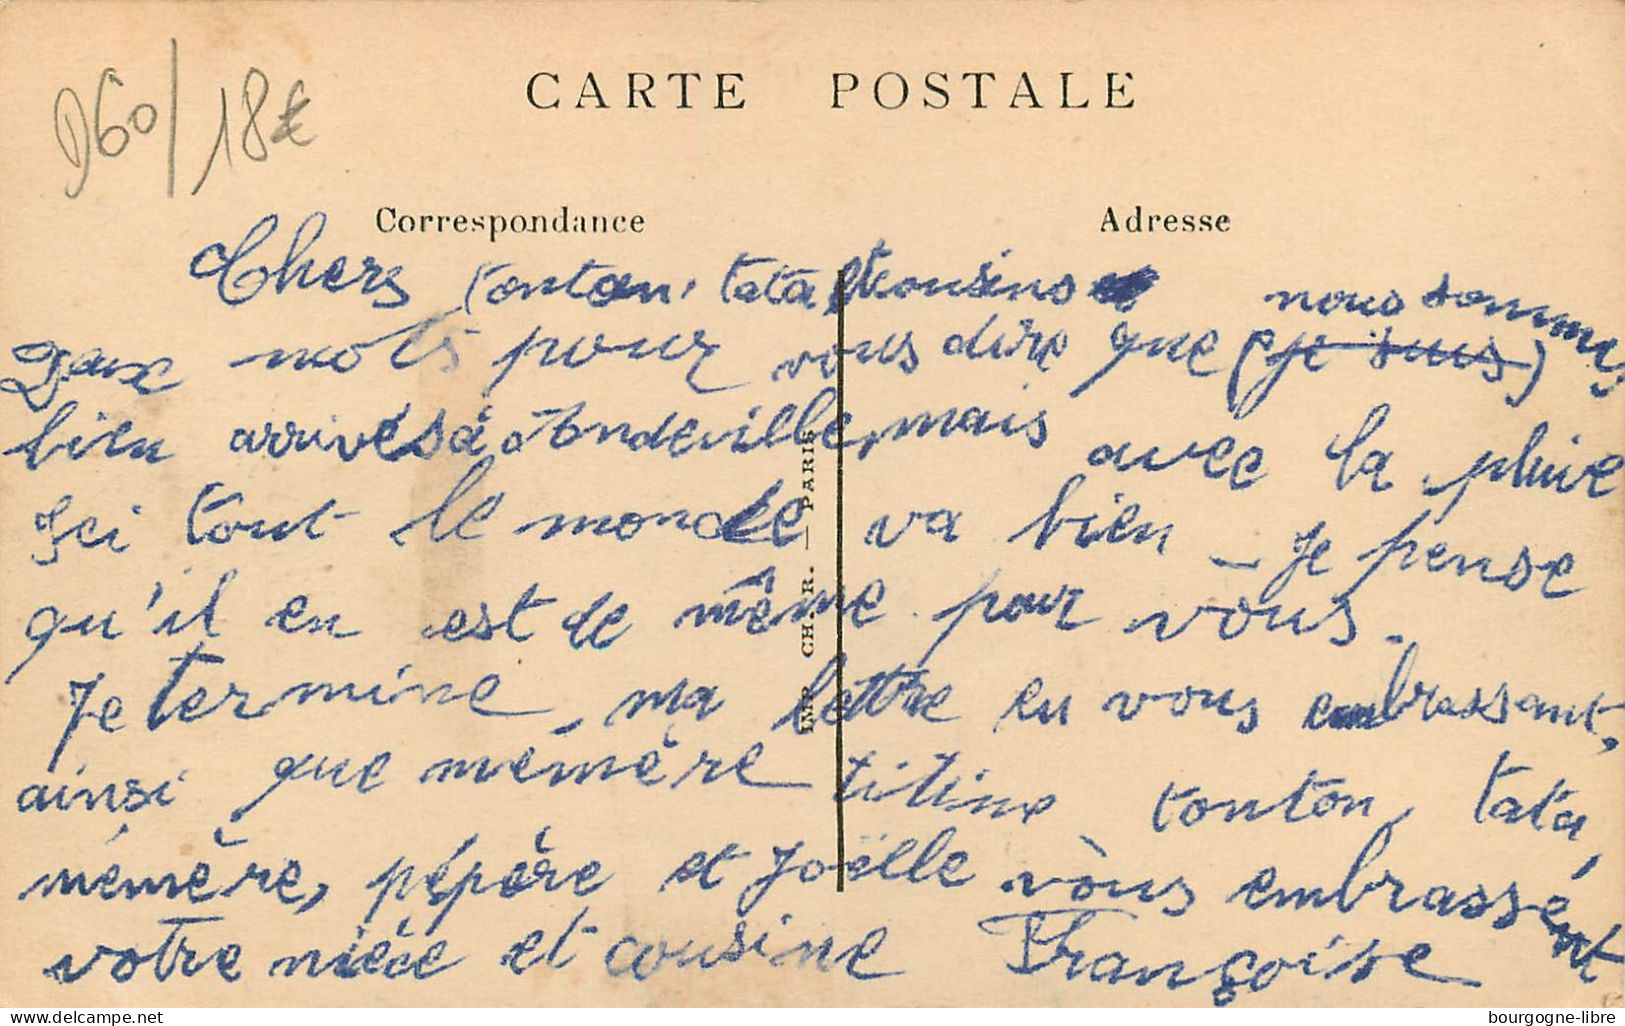 D60/18€
CARTE POSTALE
Correspondance
Adresse
Chers tonton, tata et cousins
nous sommes
Deux mots pour vous dire que (je suis)
bien arrivés à Andeville, mais avec la pluive
Ici tout le monde va bien - Je pense
qu'il en est de même pour vous.
Je termine ma lettre en vous embrassant,
ainsi que mémère titine tonton, tata,
mémère, pépère et Joëlle vous embrassent
votre nièce et cousine Françoise
IMP. CH. R. — PARIS
delcampe.net
bourgogne-libre